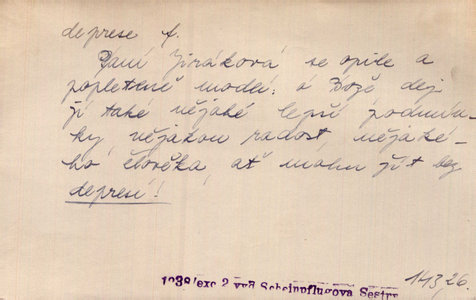 deprese f.
Paní Jiráková se opile a
popleteně modlí: ó Bože dej
jí také nějaké lepší podmín-
ky nějakou radost, nějaké-
ho člověka, ať mohu žít bez
depresí!
1938/exc 2 vyd Scheinpflugová Sestry
143,26